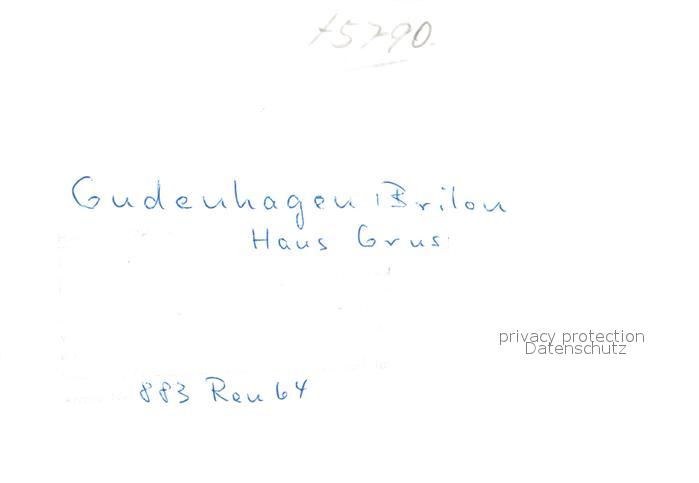 t5790.
Gudenhagen Brilon
Haus Grus
privacy protection
Datenschutz
883 Reu 64